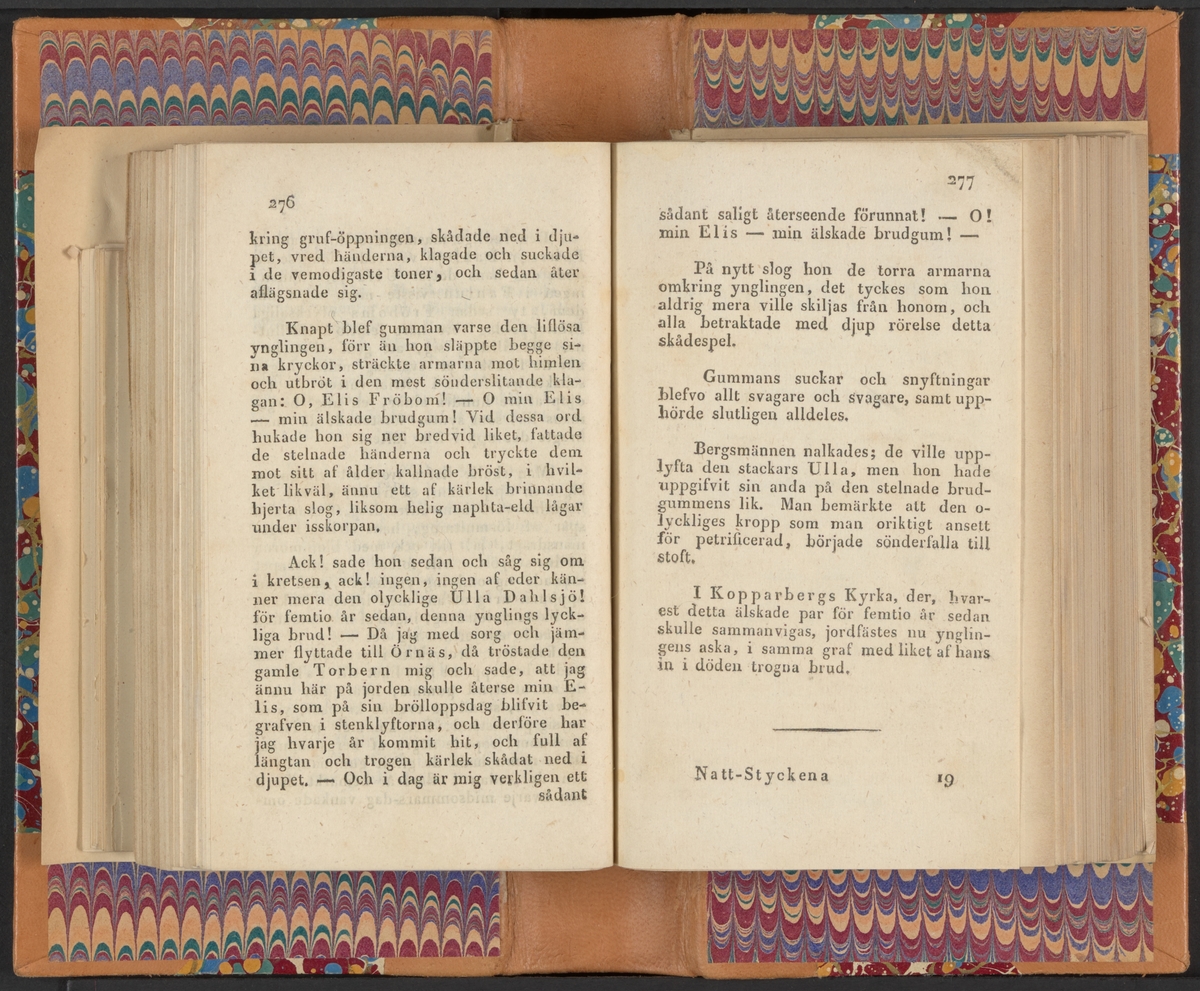 276
kring gruf-öppningen, skådade ned i dju-
pet, vred händerna, klagade och suckade
i de vemodigaste toner, och sedan åter
aflägsnade sig.
Knapt blef gumman varse den liflösa
ynglingen, förr än hon släppte begge si-
na kryckor, sträckte armarna mot himlen
och utbröt i den mest sönderslitande kla-
gan: O, Elis Fröbom! — O min Elis
— min älskade brudgum! Vid dessa ord
hukade hon sig ner bredvid liket, fattade
de stelnade händerna och tryckte dem
mot sitt af ålder kallnade bröst, i hvil-
ket likväl, ännu ett af kärlek brinnande
hjerta slog, liksom helig naphta-eld lågar
under isskorpan.
Ack! sade hon sedan och såg sig om
i kretsen, ack! ingen, ingen af eder kän-
ner mera den olycklige Ulla Dahlsjö!
för femtio år sedan, denna ynglings lyck-
liga brud! — Då jag med sorg och jäm-
mer flyttade till Örnäs, då tröstade den
gamle Torbern mig och sade, att jag
ännu här på jorden skulle återse min E-
lis, som på sin brölloppsdag blifvit be-
grafven i stenklyftorna, och derföre har
jag hvarje år kommit hit, och full af
längtan och trogen kärlek skådat ned i
djupet. — Och i dag är mig verkligen ett
sådant
277
sådant saligt återseende förunnat! — O!
min Elis — min älskade brudgum! —
På nytt slog hon de torra armarna
omkring ynglingen, det tyckes som hon
aldrig mera ville skiljas från honom, och
alla betraktade med djup rörelse detta
skådespel.
Gummans suckar och snyftningar
blefvo allt svagare och svagare, samt upp-
hörde slutligen alldeles.
Bergsmännen nalkades; de ville upp-
lyfta den stackars Ulla, men hon hade
uppgifvit sin anda på den stelnade brud-
gummens lik. Man bemärkte att den o-
lyckliges kropp som man oriktigt ansett
för petrificerad, började sönderfalla till
stoft.
I Kopparbergs Kyrka, der, hvar-
est detta älskade par för femtio år sedan
skulle sammanvigas, jordfästes nu ynglin-
gens aska, i samma graf med liket af hans
in i döden trogna brud.
Natt-Styckena 19